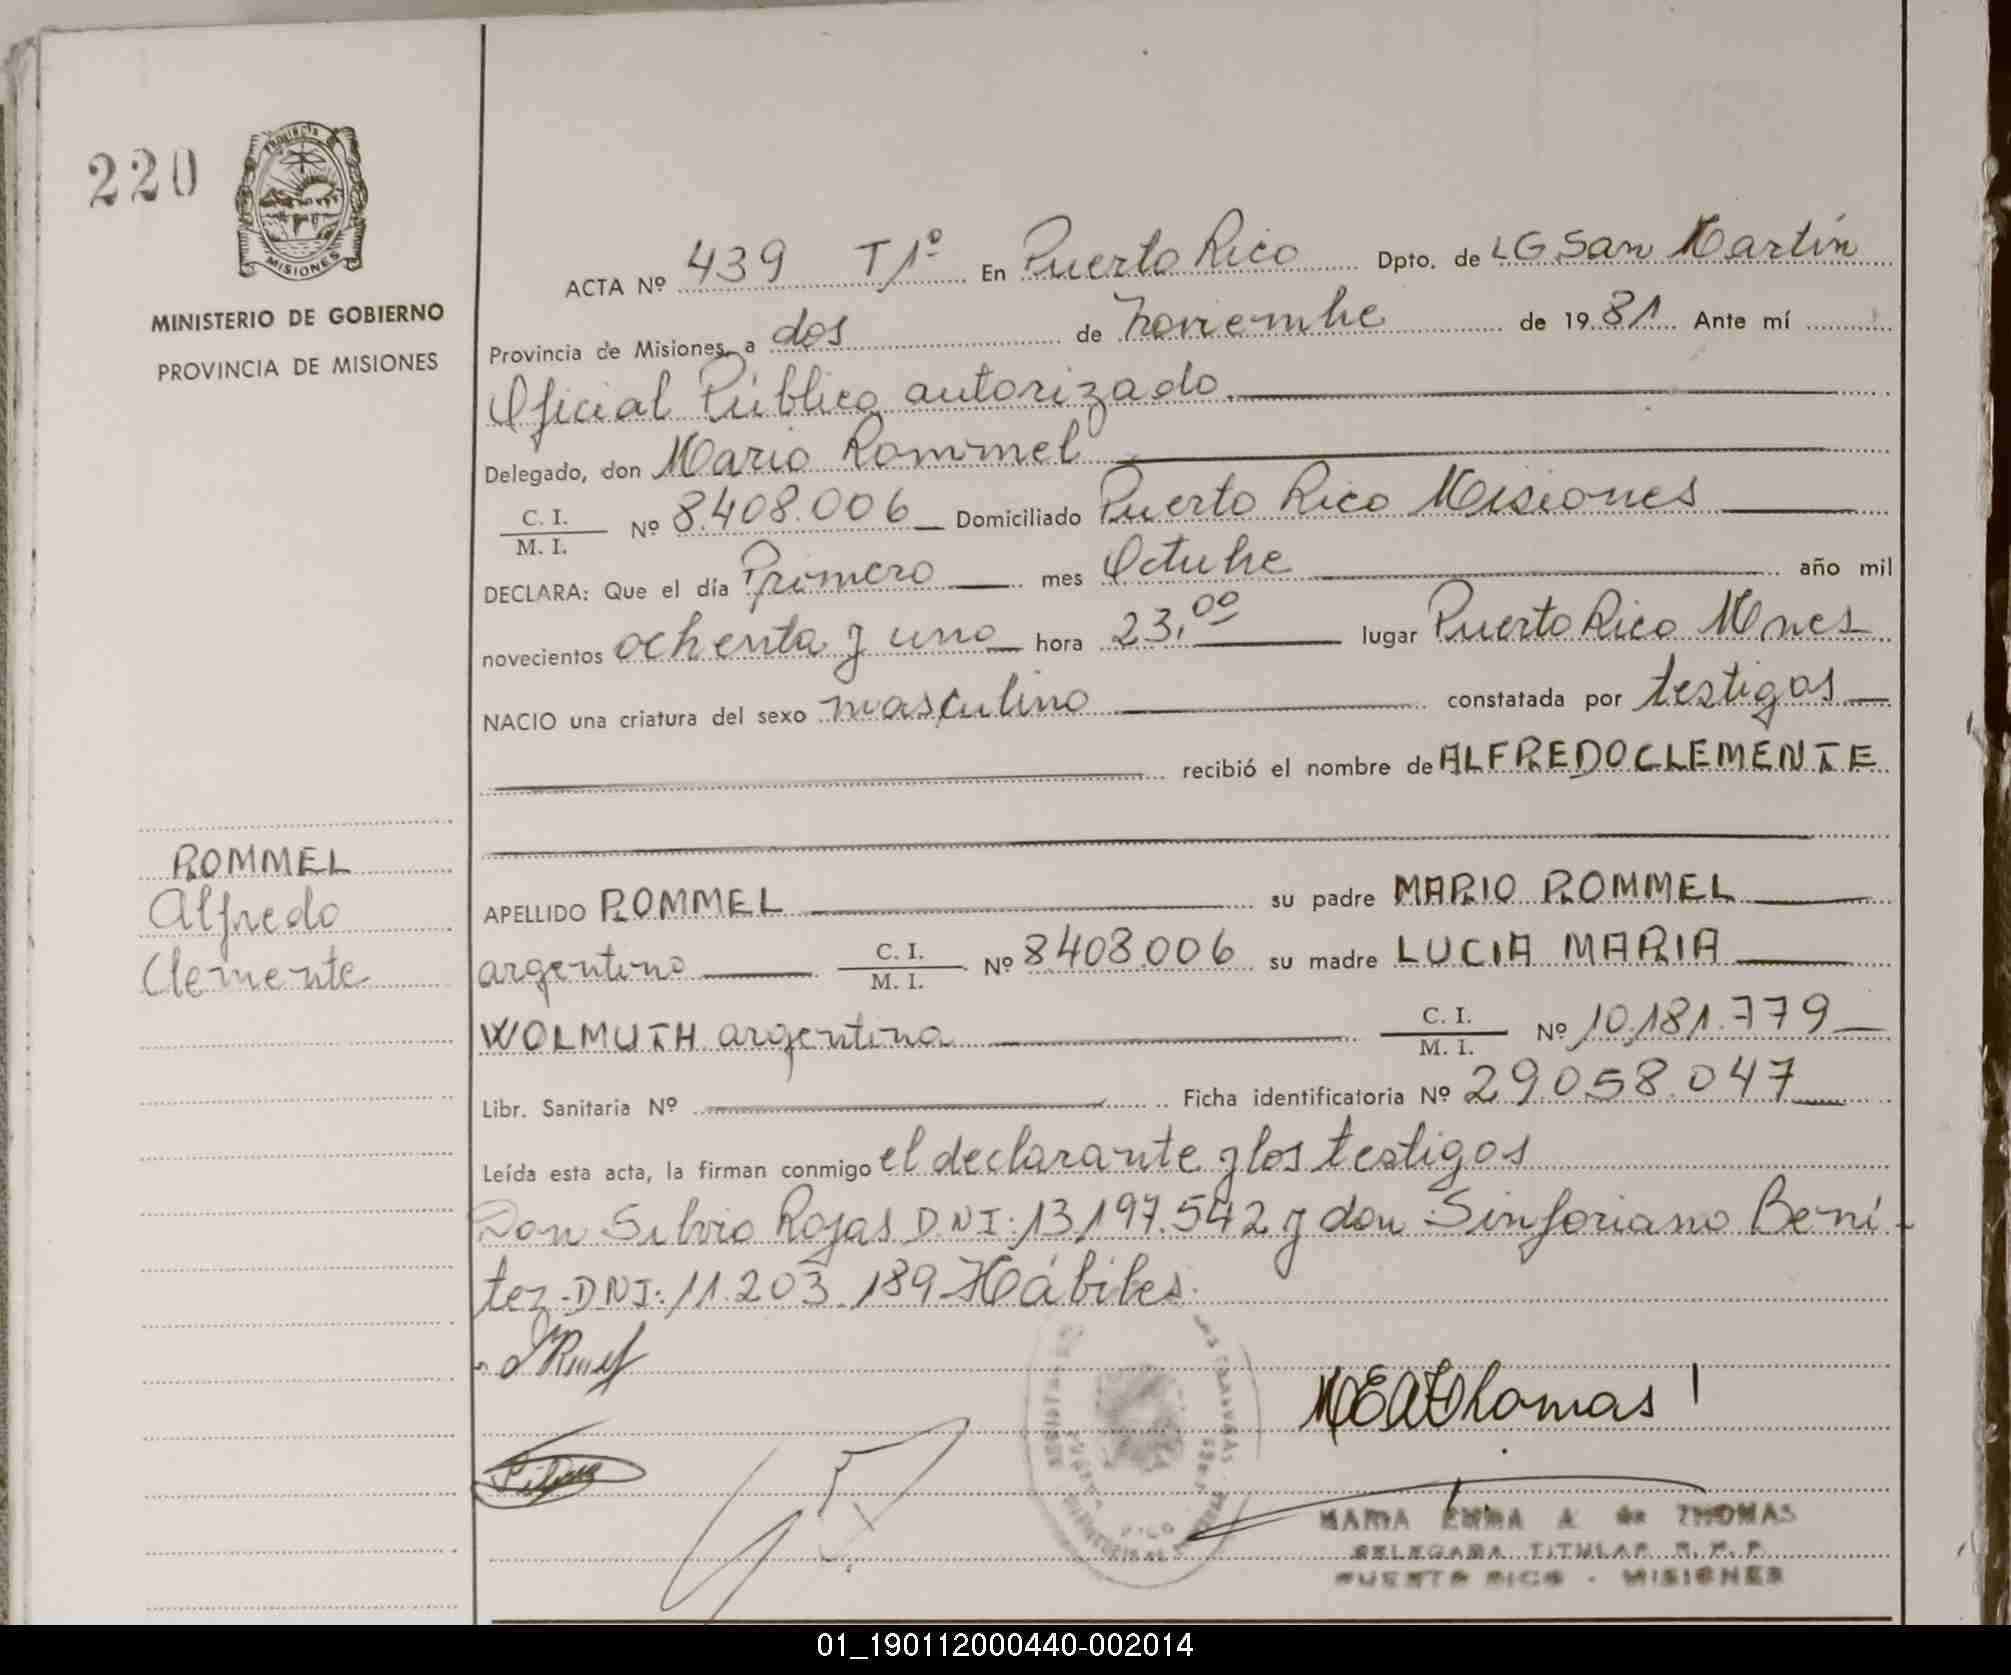 220
PROVINCIA
MISIONES
MINISTERIO DE GOBIERNO
PROVINCIA DE MISIONES
ROMMEL
Alfredo
Clemente
ACTA Nº 439 T1º En Puerto Rico Dpto. de LG San Martín
Provincia de Misiones, a dos de noviembre de 1981 Ante mí
Oficial Público autorizado
Delegado, don Mario Rommel
C. I.
M. I. Nº 8.408.006 Domiciliado Puerto Rico Misiones
DECLARA: Que el día Primero mes Octubre año mil
novecientos ochenta y uno hora 23,00 lugar Puerto Rico Mnes
NACIO una criatura del sexo masculino constatada por testigos
recibió el nombre de ALFREDO CLEMENTE
APELLIDO ROMMEL su padre MARIO ROMMEL
argentino C. I. M. I. Nº 8408.006 su madre LUCIA MARIA
WOLMUTH argentina C. I. M. I. Nº 10.181.779
Libr. Sanitaria Nº Ficha identificatoria Nº 29.058.047
Leída esta acta, la firman conmigo el declarante y los testigos
Don Silvio Rojas D.N.I: 13.197.542 y don Sinforiano Bení-
tez-DNI: 11.203.189 Hábiles.
MEA Thomas
MARIA EMMA A. de THOMAS
DELEGADA TITULAR R. P. P.
PUERTO RICO - MISIONES
01_190112000440-002014